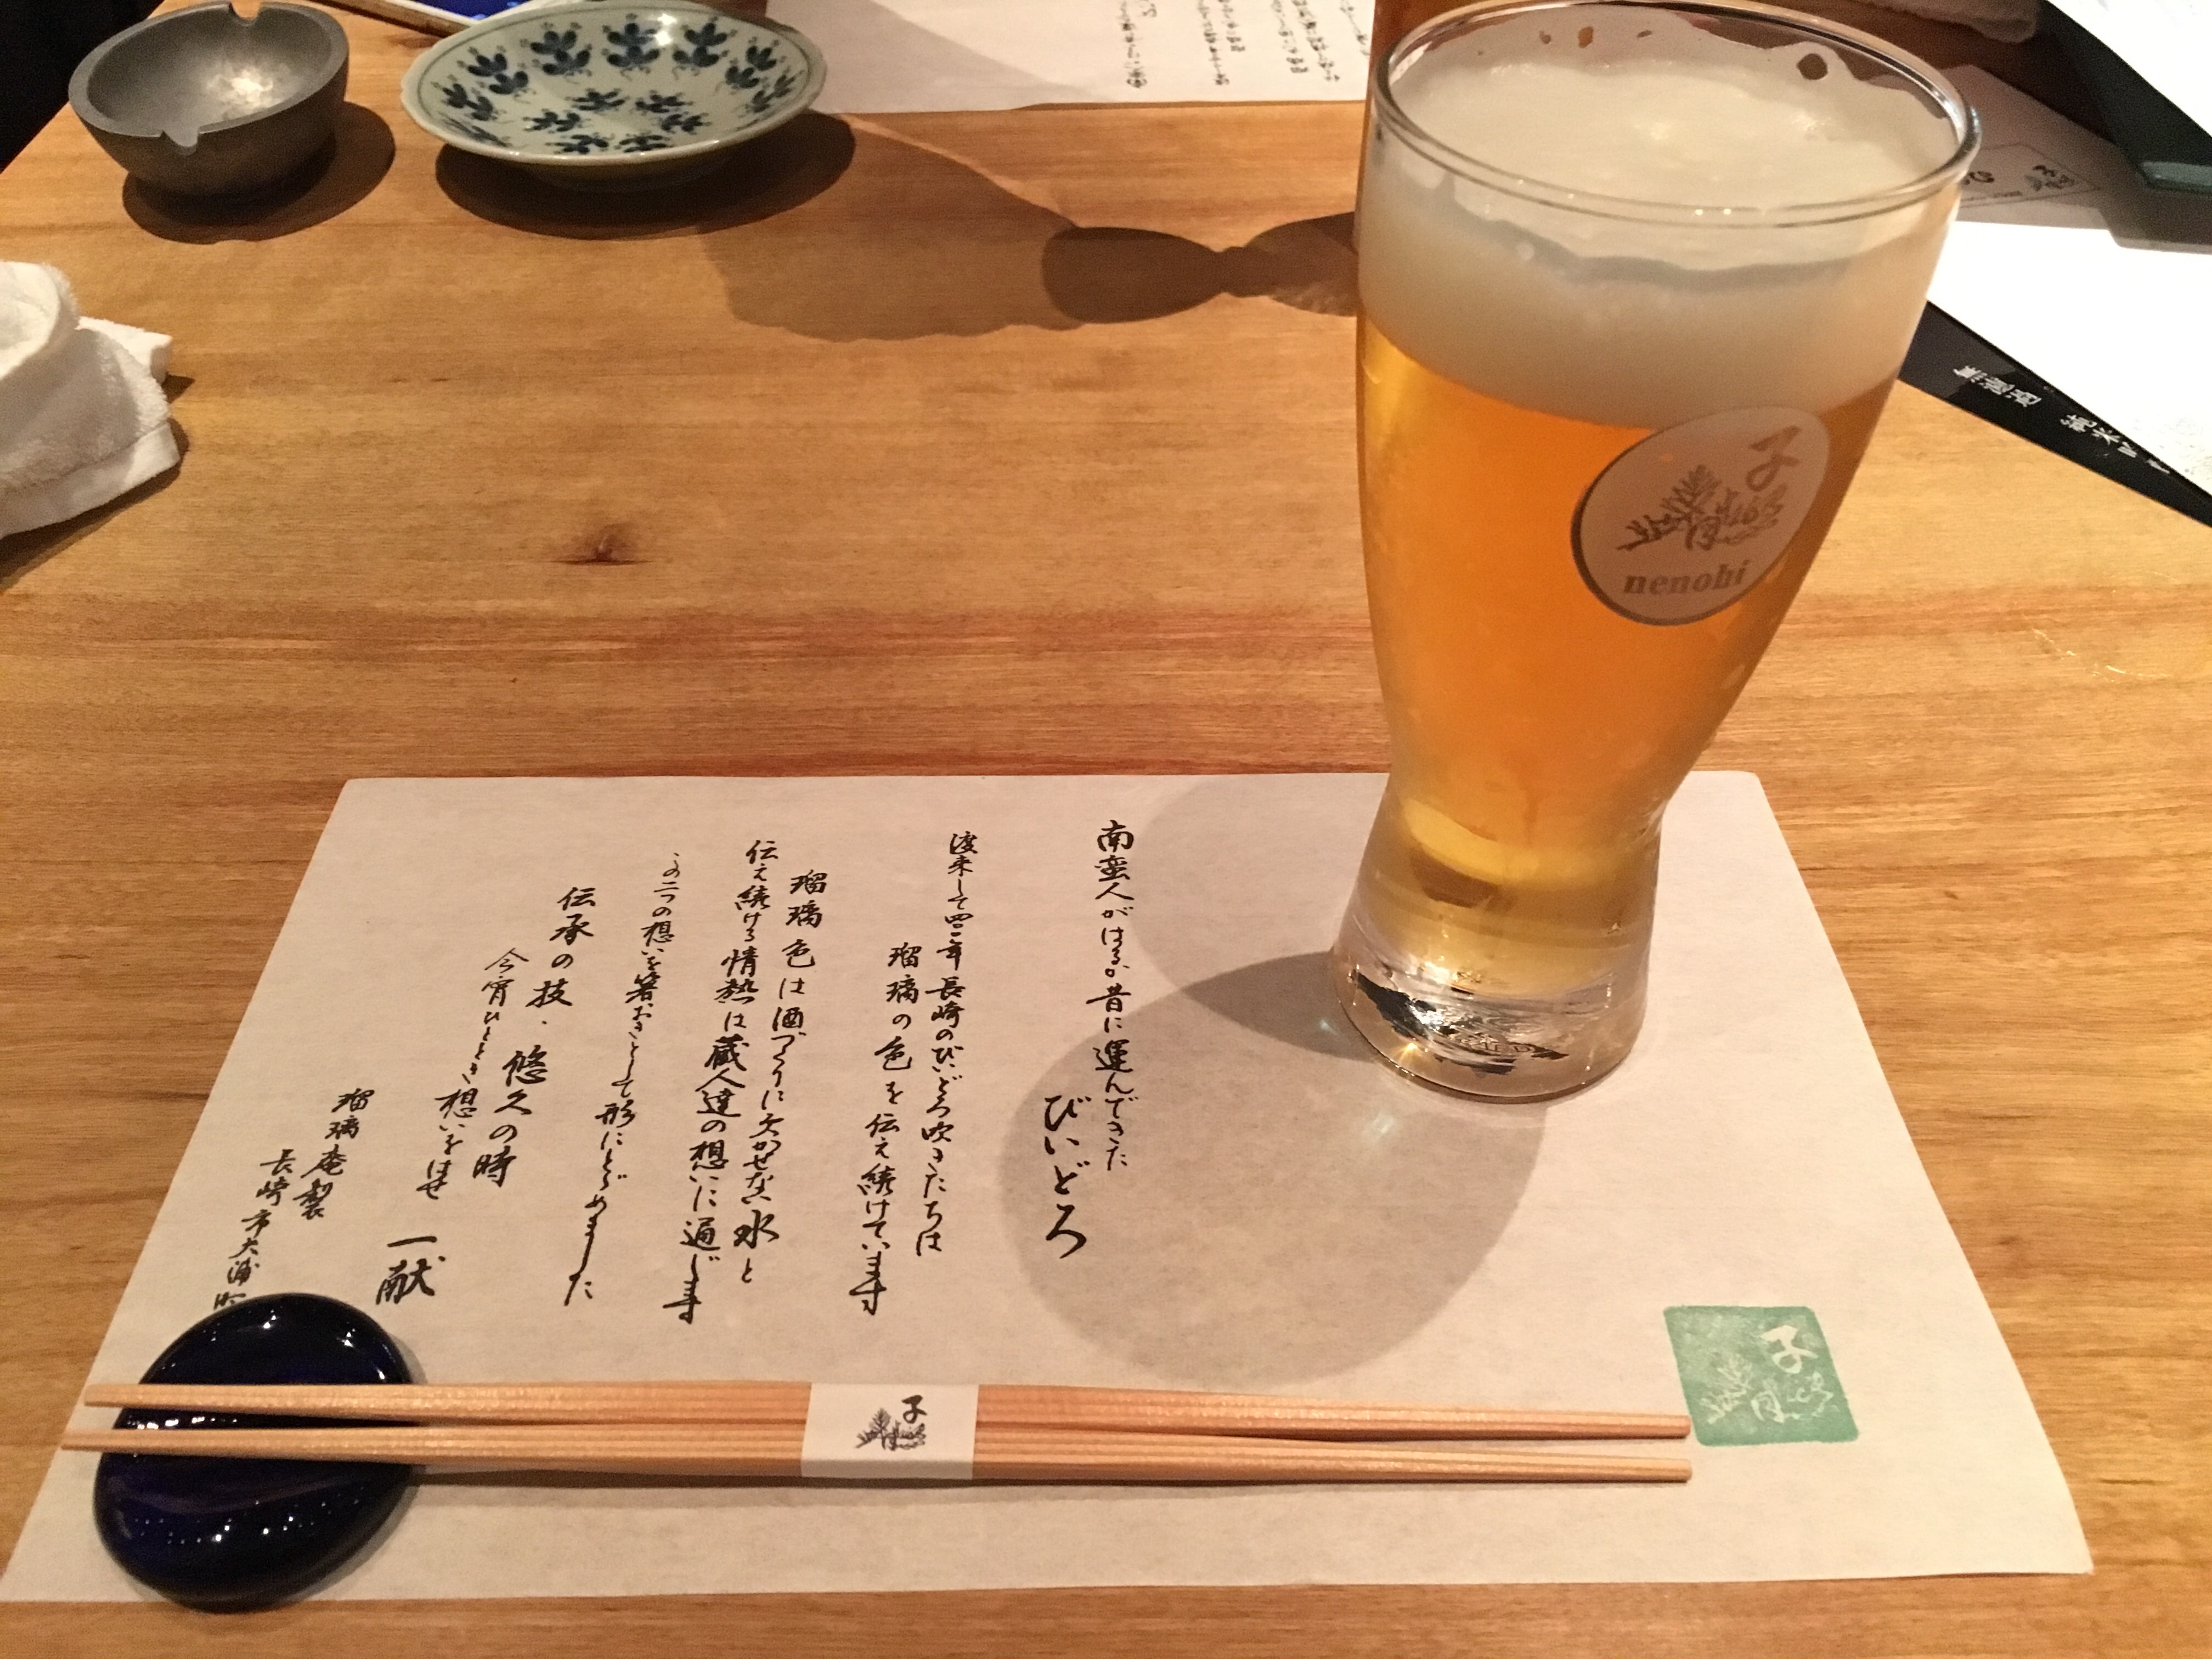 南蛮人がはるか昔に運んできた
びいどろ
渡来して四百年長崎のびいどろ吹きたちは
瑠璃の色を伝え続けています
瑠璃色は酒づくりに欠かせない水と
伝え続ける情熱は蔵人達の想いに通じます
この二つの想いを箸おきとして形にとどめました
伝承の技、悠久の時
今宵ひととき想いをはせ
一献
瑠璃庵製
長崎市大浦町
子
nenohi
子
子
無濾過 純米